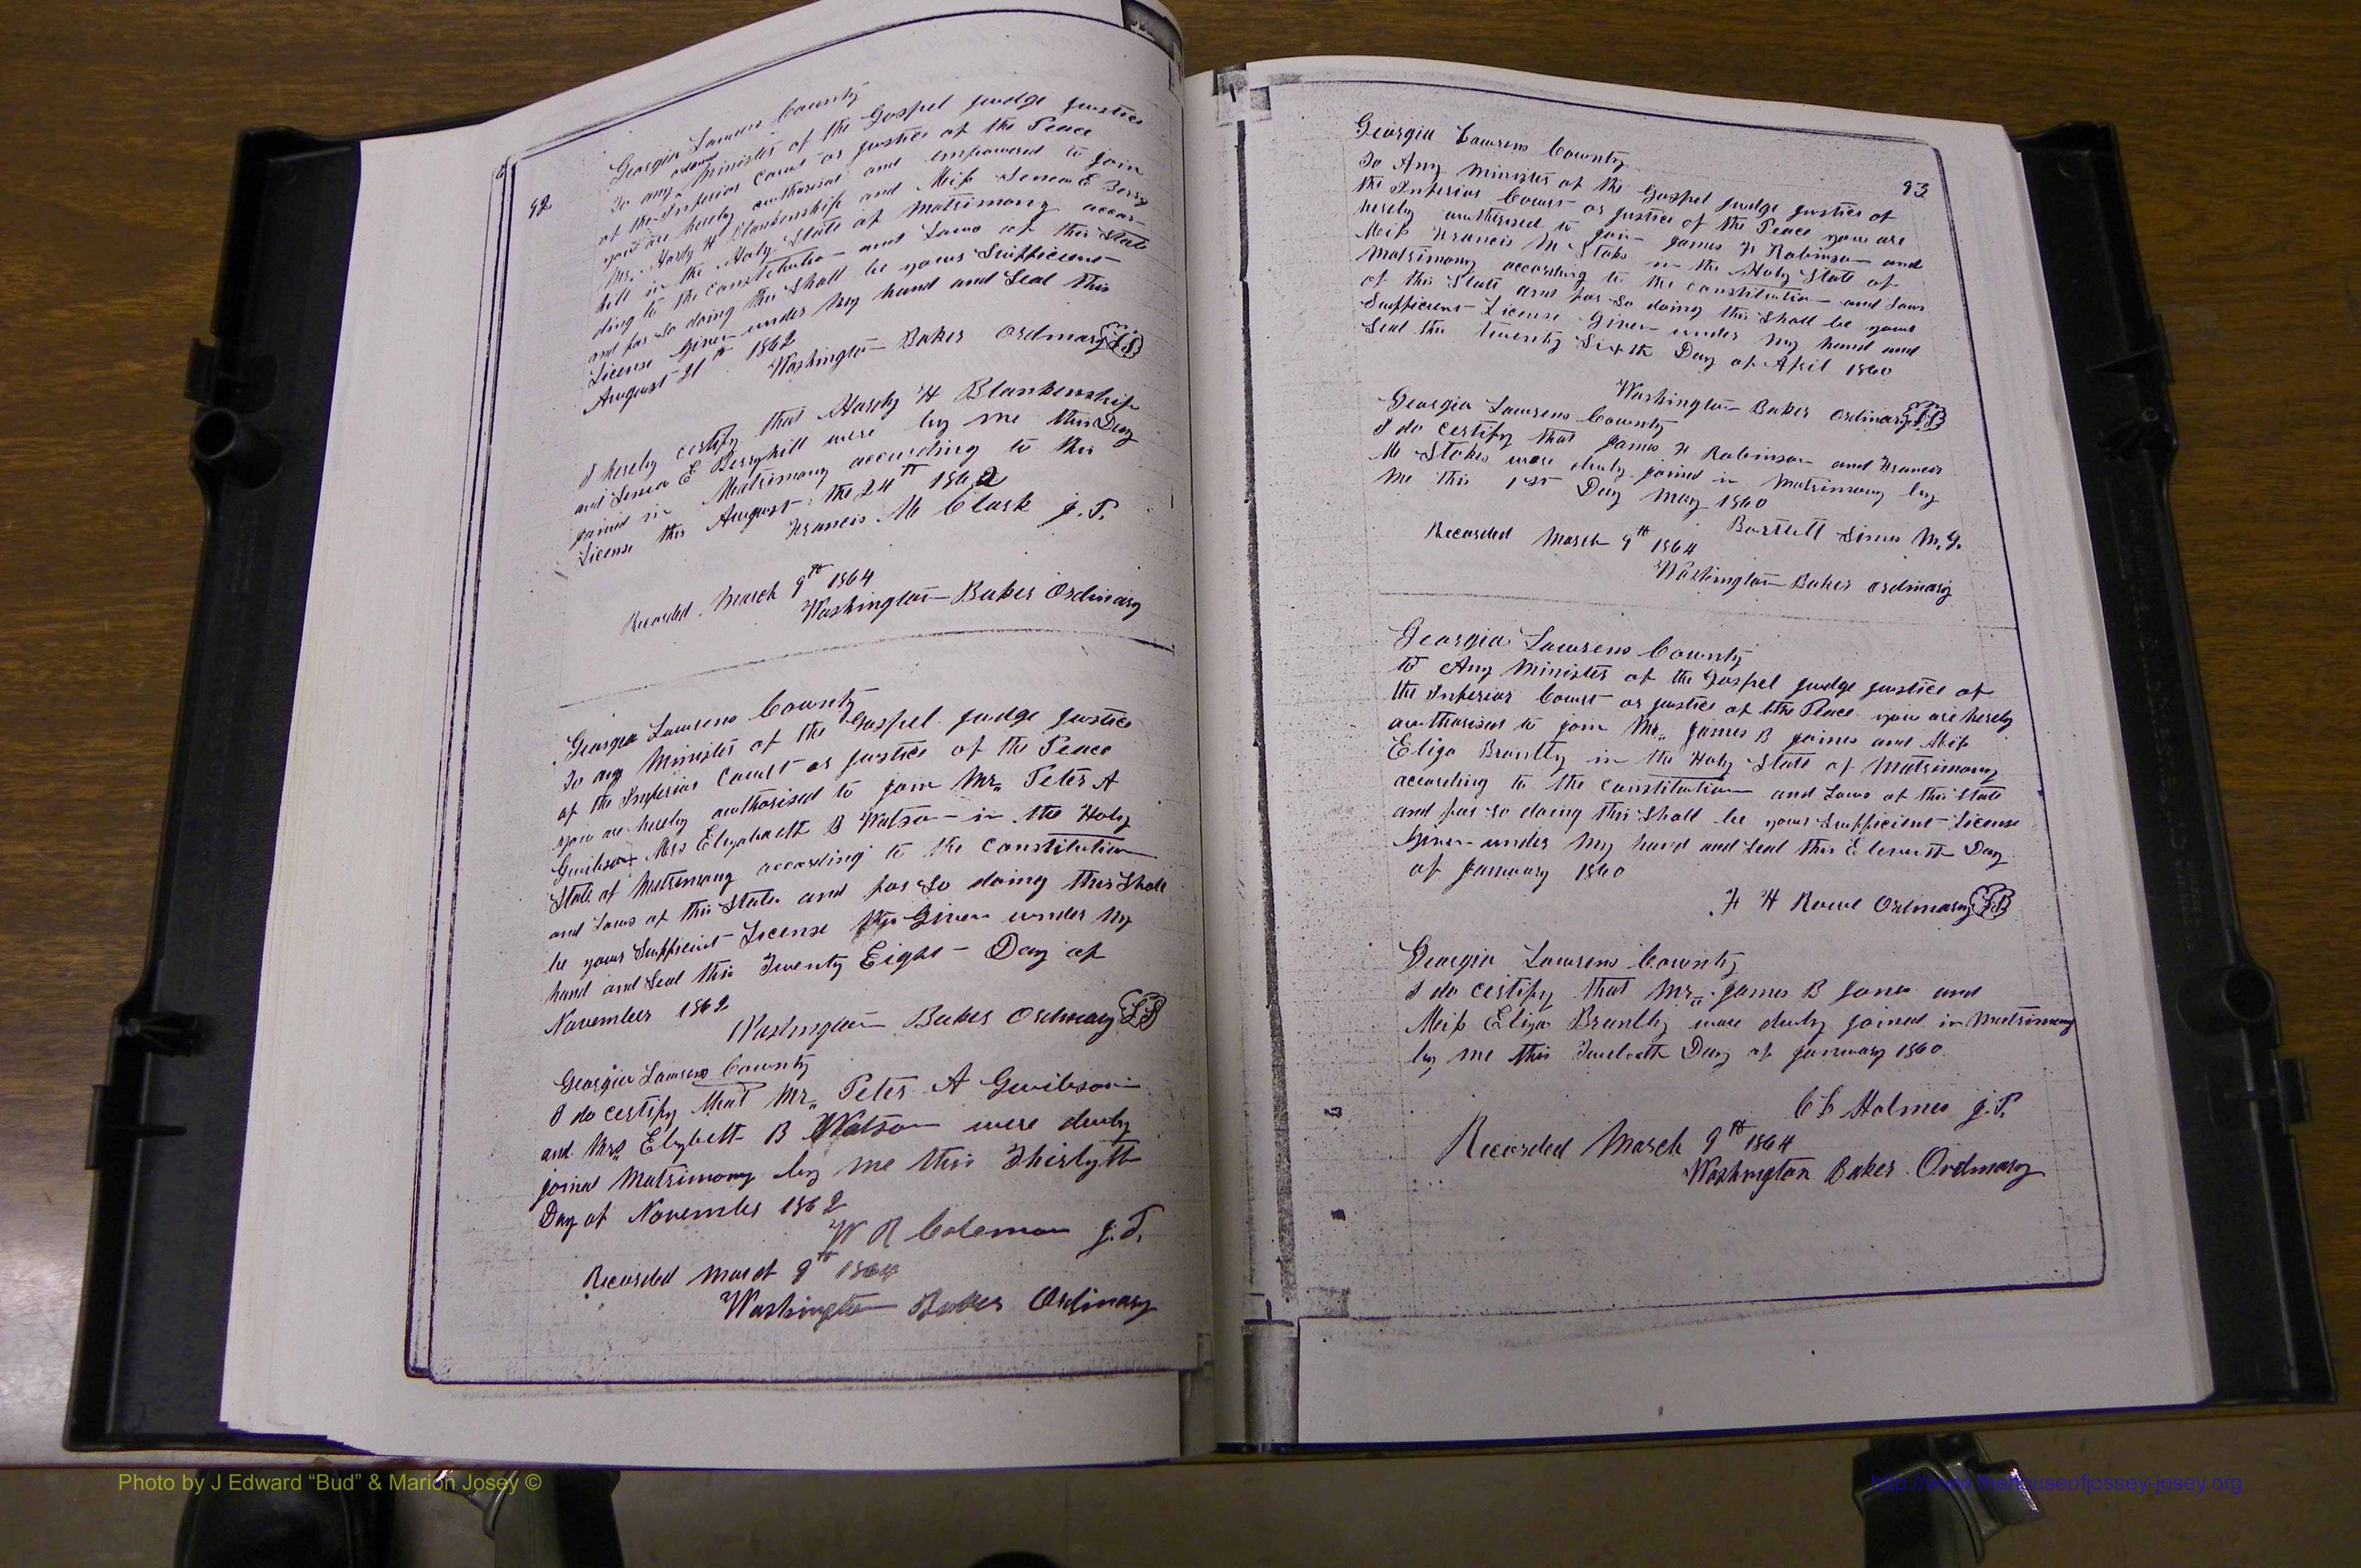 92
Georgia Laurens County
To any ordained Minister of the Gospel Judge Justice
of the Inferior Court or Justice of the Peace
you are hereby authorised and empowered to join
Mr. Hardy H Blankenship and Miss Lenea E Berry
hill in the Holy State of Matrimony accor-
ding to the constitution and Laws of this State
and for so doing this Shall be yours Sufficient
License Given under my hand and Seal this
August 21st 1862
Washington Baker Ordinary LS
I hereby certify that Hardy H Blankenship
and Lenea E Berryhill were by me this Day
joined in Matrimony according to this
License this August the 24th 1862
Francis M Clark J.P.
Recorded March 9th 1864
Washington Baker Ordinary
Georgia Laurens County
To any Minister of the Gospel Judge Justice
of the Inferior Court or Justice of the Peace
you are hereby authorised to join Mr. Peter A
Mrs Elizabeth B Watson in the Holy
State of Matrimony according to the Constitution
and Laws of this State and for So doing this Shall
be yours Sufficient License Given under my
hand and Seal this Twenty Eight Day of
November 1862
Washington Baker Ordinary LS
Georgia Laurens County
I do certify that Mr. Peter A
and Mrs Elizbeth B Watson were duly
joined Matrimony by me this Thirtyth
Day of November 1862
W R Coleman J.P.
Recorded March 9th 1864
Washington Baker Ordinary
93
Georgia Laurens County
To Any Minister of the Gospel Judge Justice of
the Inferior Court or Justice of the Peace you are
hereby authorised to join James F Robinson and
Miss Francis M Stoks in the Holy State of
Matrimony according to the constitution and Laws
of this State and for So doing this Shall be yours
Sufficient License Given under my hand and
Seal this Twenty Sixth Day of April 1860
Washington Baker Ordinary LS
Georgia Laurens County
I do certify that James F Robinson and Francis
M Stokes were duly joined in Matrimony by
me this 1st Day May 1860
Bartlett Sims M.G.
Recorded March 9th 1864
Washington Baker Ordinary
Georgia Laurens County
to Any Minister of the Gospel Judge Justice of
the Inferior Court or Justice of the Peace you are hereby
authorised to join Mr. James B Joines and Miss
Eliza Brantly in the Holy State of Matrimony
according to the Constitution and Laws of this State
and for so doing this Shall be your Sufficient License
Given under my hand and Seal this Eleventh Day
of January 1860
F H Rowe Ordinary LS
Georgia Laurens County
I do certify that Mr. James B Jones and
Miss Eliza Brantly were duly joined in Matrimony
by me this Twelveth Day of January 1860
C L Holmes J.P.
Recorded March 9th 1864
Washington Baker Ordinary
Photo by J Edward “Bud” & Marion Josey ©
http://www.thehouseofjossey-josey.org